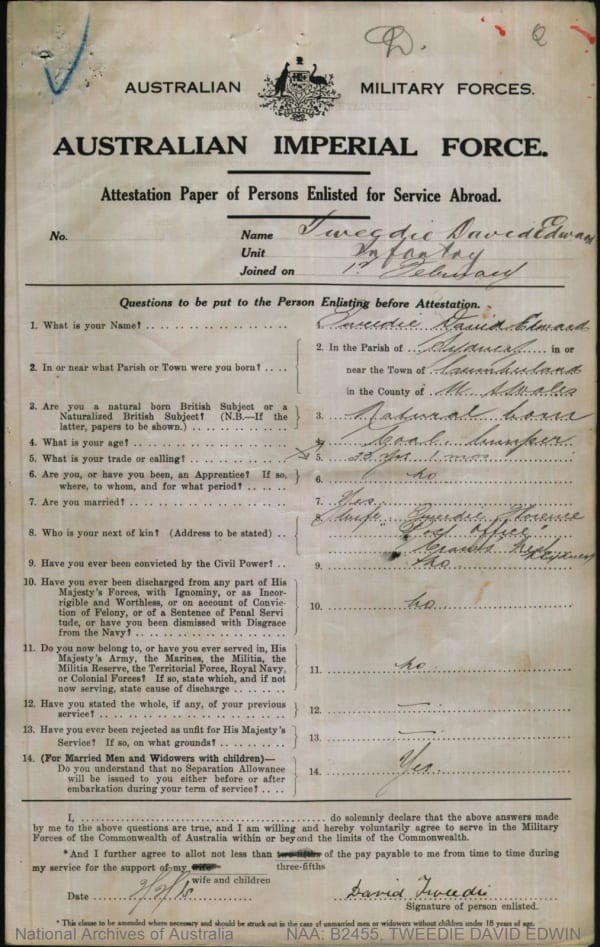 D. Q
AUSTRALIAN MILITARY FORCES.
AUSTRALIAN IMPERIAL FORCE.
Attestation Paper of Persons Enlisted for Service Abroad.
No. Name Tweedie David Edward
Unit Infantry
Joined on 1st February
Questions to be put to the Person Enlisting before Attestation.
1. What is your Name? 1. Tweedie David Edward
2. In or near what Parish or Town were you born? 2. In the Parish of Sydney in or
near the Town of Cumberland
in the County of N. S Wales
3. Are you a natural born British Subject or a
Naturalized British Subject? (N.B.—If the
latter, papers to be shown.) 3. Natural born
4. What is your age? Coal lumper
5. What is your trade or calling? 5. yrs 1 mos
6. Are you, or have you been, an Apprentice? If so,
where, to whom, and for what period? 6. no
7. Are you married? 7. Yes
8. Who is your next of kin? (Address to be stated) 8. Wife Tweedie Florence
"Post Office"
Crows Nest Sydney
9. Have you ever been convicted by the Civil Power? 9. no
10. Have you ever been discharged from any part of His
Majesty's Forces, with Ignominy, or as Incor-
rigible and Worthless, or on account of Convic-
tion of Felony, or of a Sentence of Penal Servi-
tude, or have you been dismissed with Disgrace
from the Navy? 10. no
11. Do you now belong to, or have you ever served in, His
Majesty's Army, the Marines, the Militia, the
Militia Reserve, the Territorial Force, Royal Navy,
or Colonial Forces? If so, state which, and if not
now serving, state cause of discharge 11. no
12. Have you stated the whole, if any, of your previous
service? 12. —
13. Have you ever been rejected as unfit for His Majesty's
Service? If so, on what grounds? 13. —
14. (For Married Men and Widowers with children)—
Do you understand that no Separation Allowance
will be issued to you either before or after
embarkation during your term of service? 14. Yes.
I, do solemnly declare that the above answers made
by me to the above questions are true, and I am willing and hereby voluntarily agree to serve in the Military
Forces of the Commonwealth of Australia within or beyond the limits of the Commonwealth.
*And I further agree to allot not less than two-fifths of the pay payable to me from time to time during
three-fifths
my service for the support of my wife
wife and children
Date David Tweedie
Signature of person enlisted.
*This clause to be amended where necessary and should be struck out in the case of unmarried men or widowers without children under 18 years of age.
National Archives of Australia NAA: B2455, TWEEDIE DAVID EDWIN